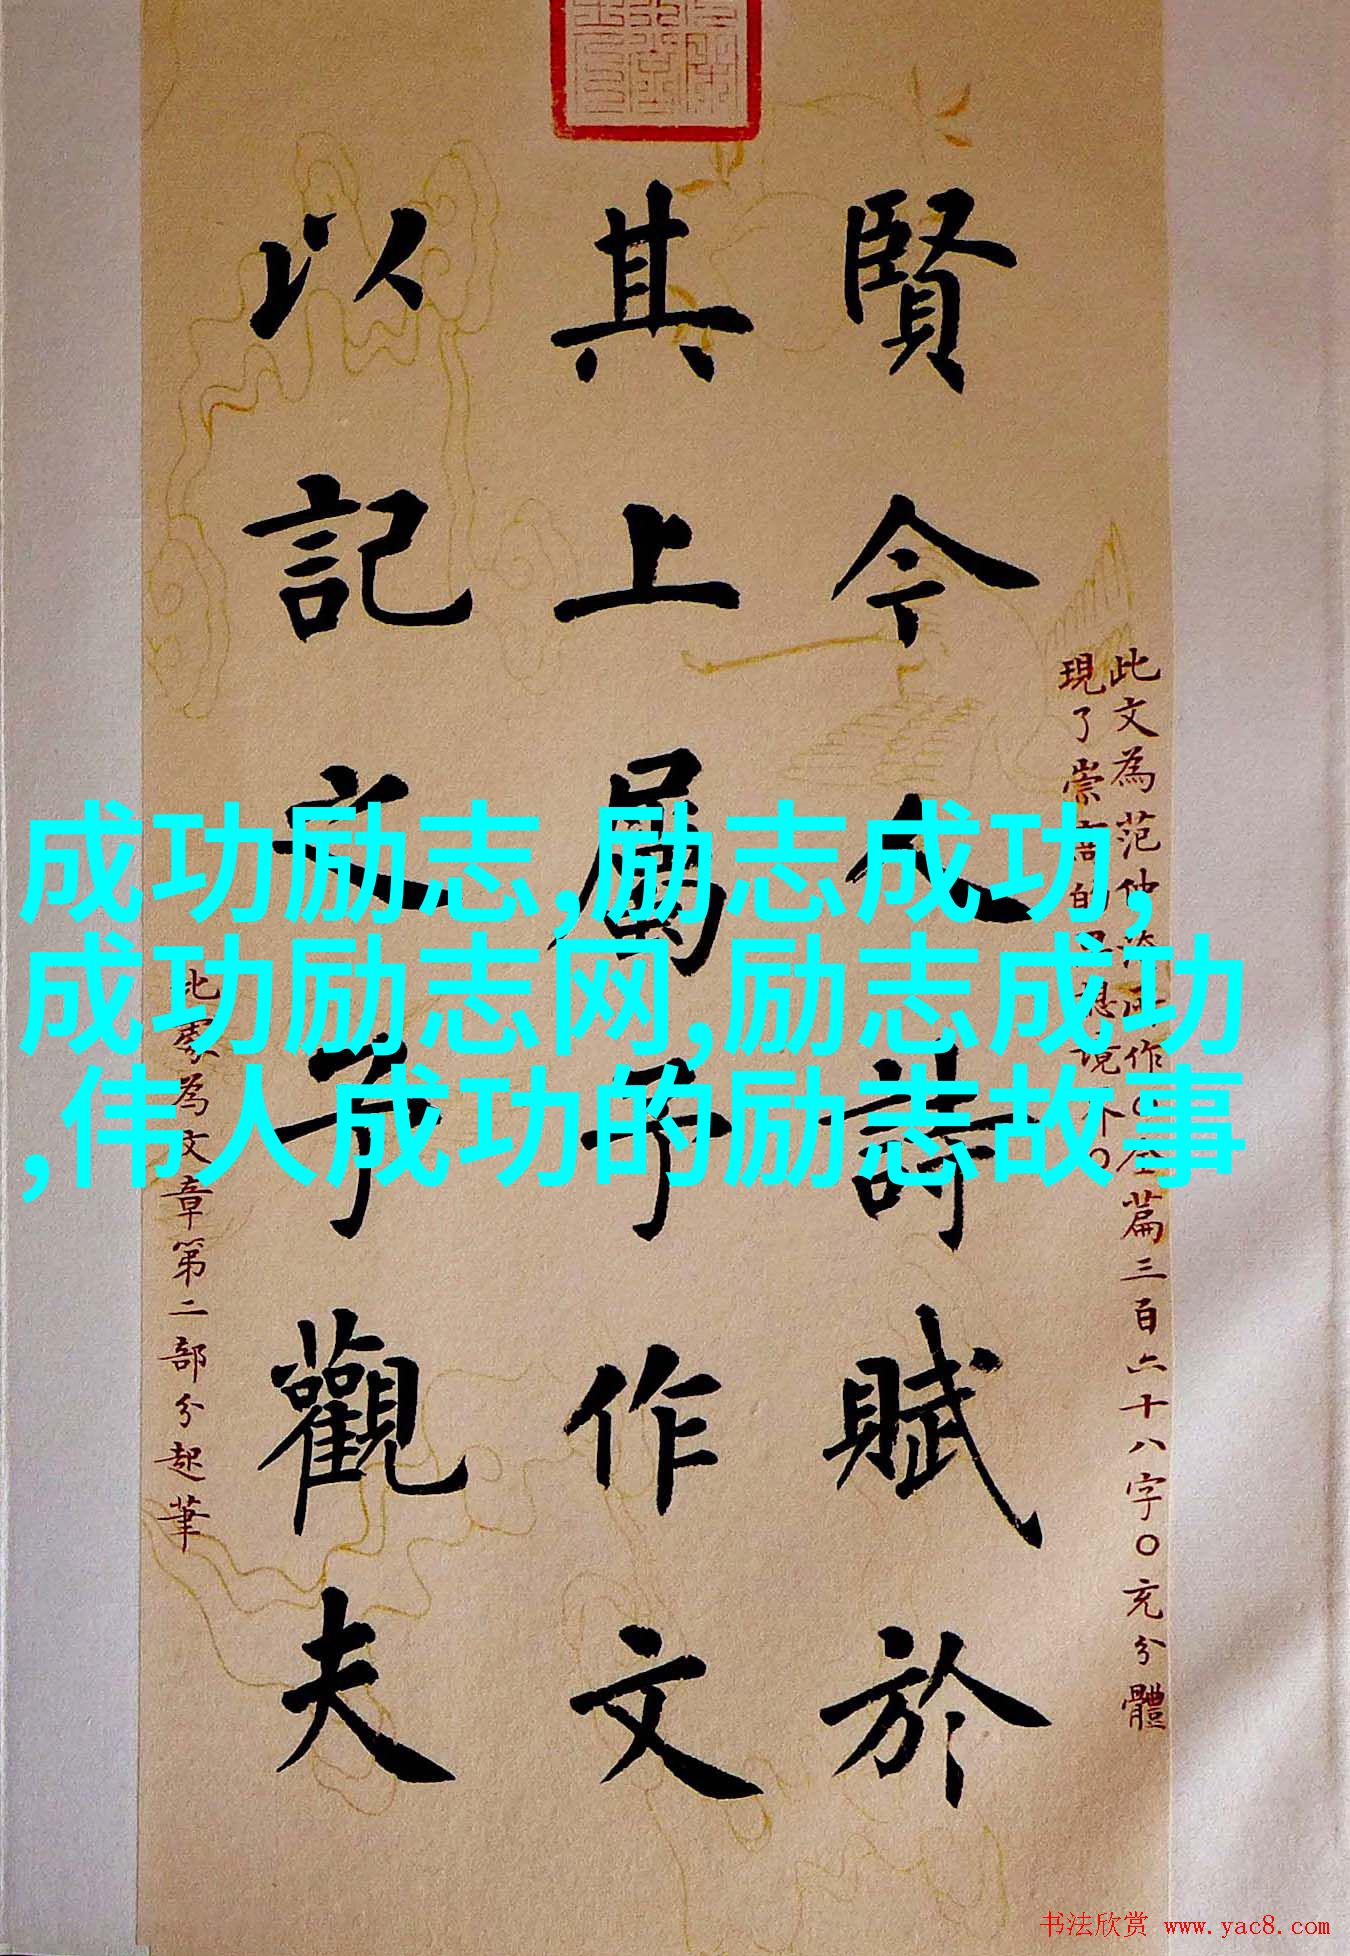 賢今人詩賦於
其上属予作文
以記之予觀夫
此文為范仲淹所作〇全篇三百六十八字〇充分體
現了崇高的思想境界〇
此處為文章第二部分起筆
成功励志,励志成功,
成功励志网,励志成功
,伟人成功的励志故事
书法欣赏 www.yac8.com